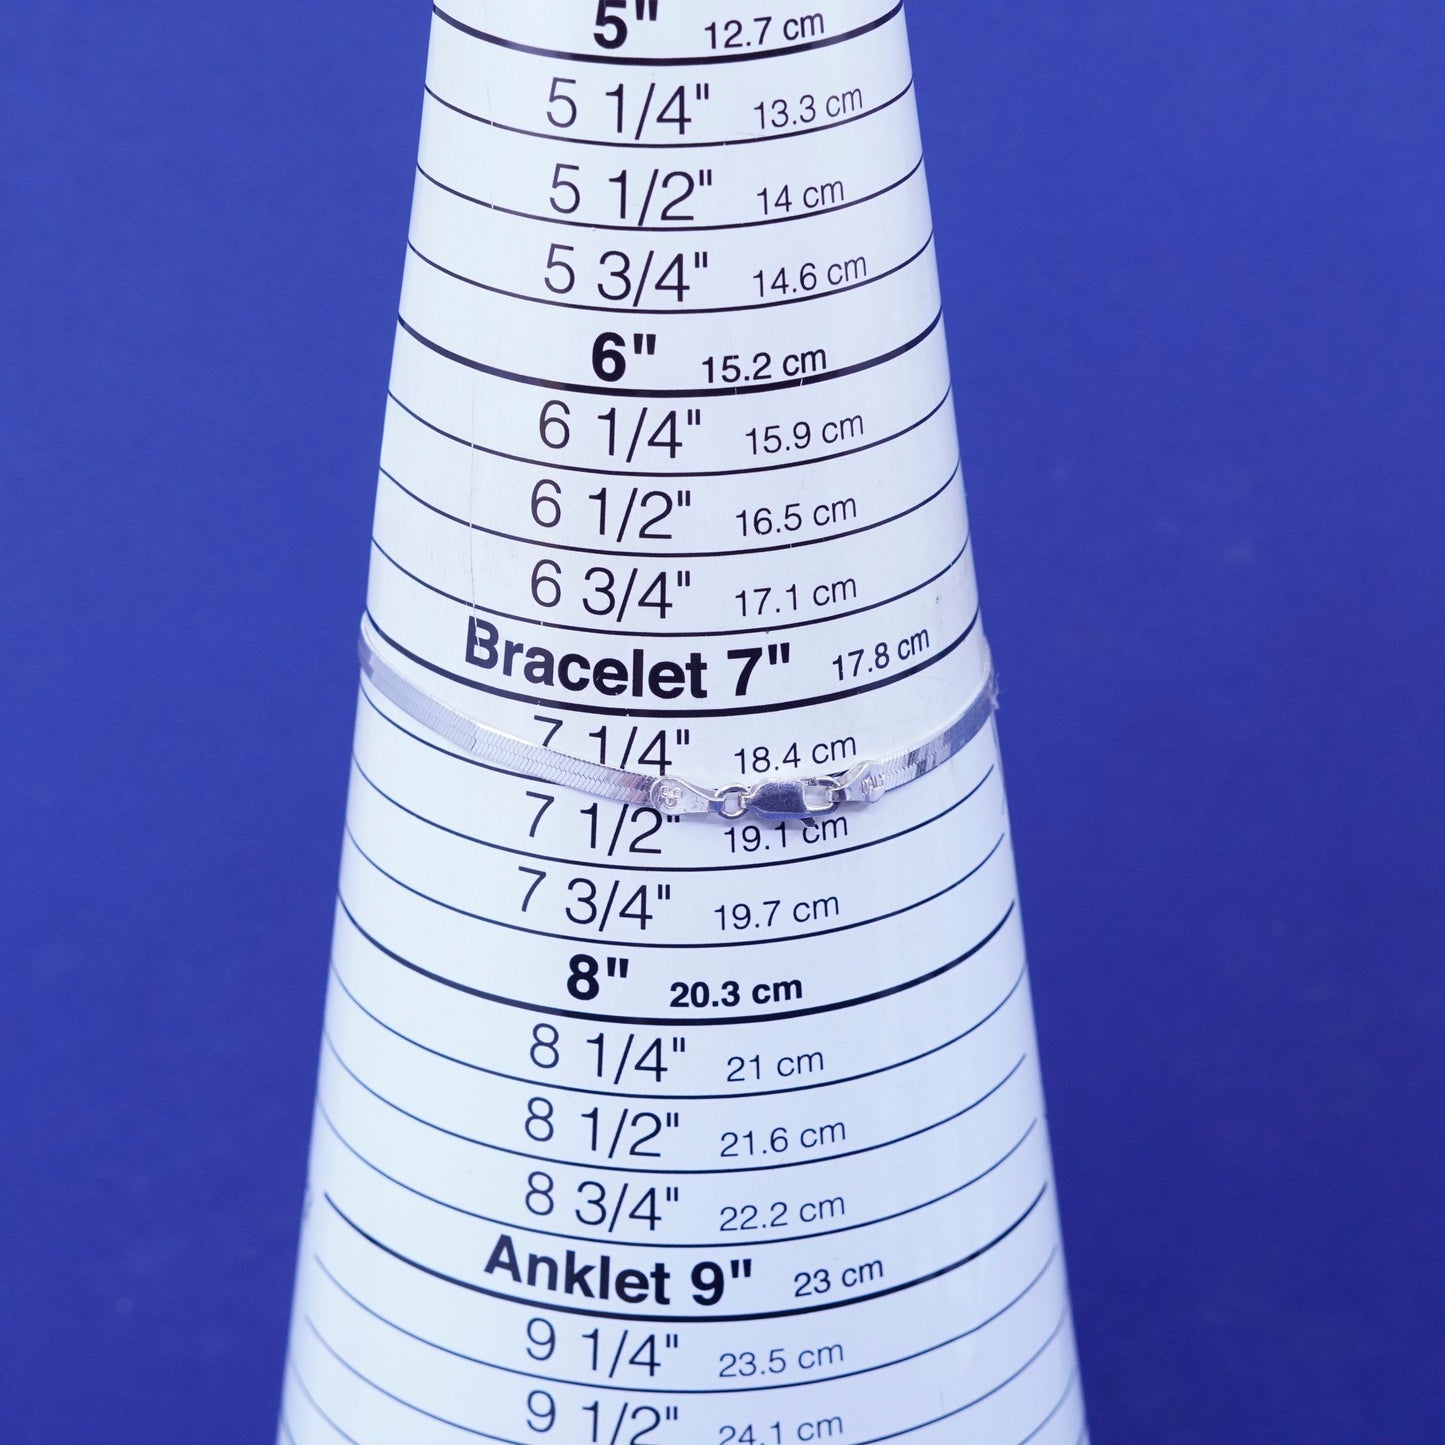 5" 12.7 cm
5 1/4" 13.3 cm
5 1/2" 14 cm
5 3/4" 14.6 cm
6" 15.2 cm
6 1/4" 15.9 cm
6 1/2" 16.5 cm
6 3/4" 17.1 cm
Bracelet 7" 17.8 cm
7 1/4" 18.4 cm
ITALY
7 1/2" 19.1 cm
7 3/4" 19.7 cm
8" 20.3 cm
8 1/4" 21 cm
8 1/2" 21.6 cm
8 3/4" 22.2 cm
Anklet 9" 23 cm
9 1/4" 23.5 cm
9 1/2" 24.1 cm